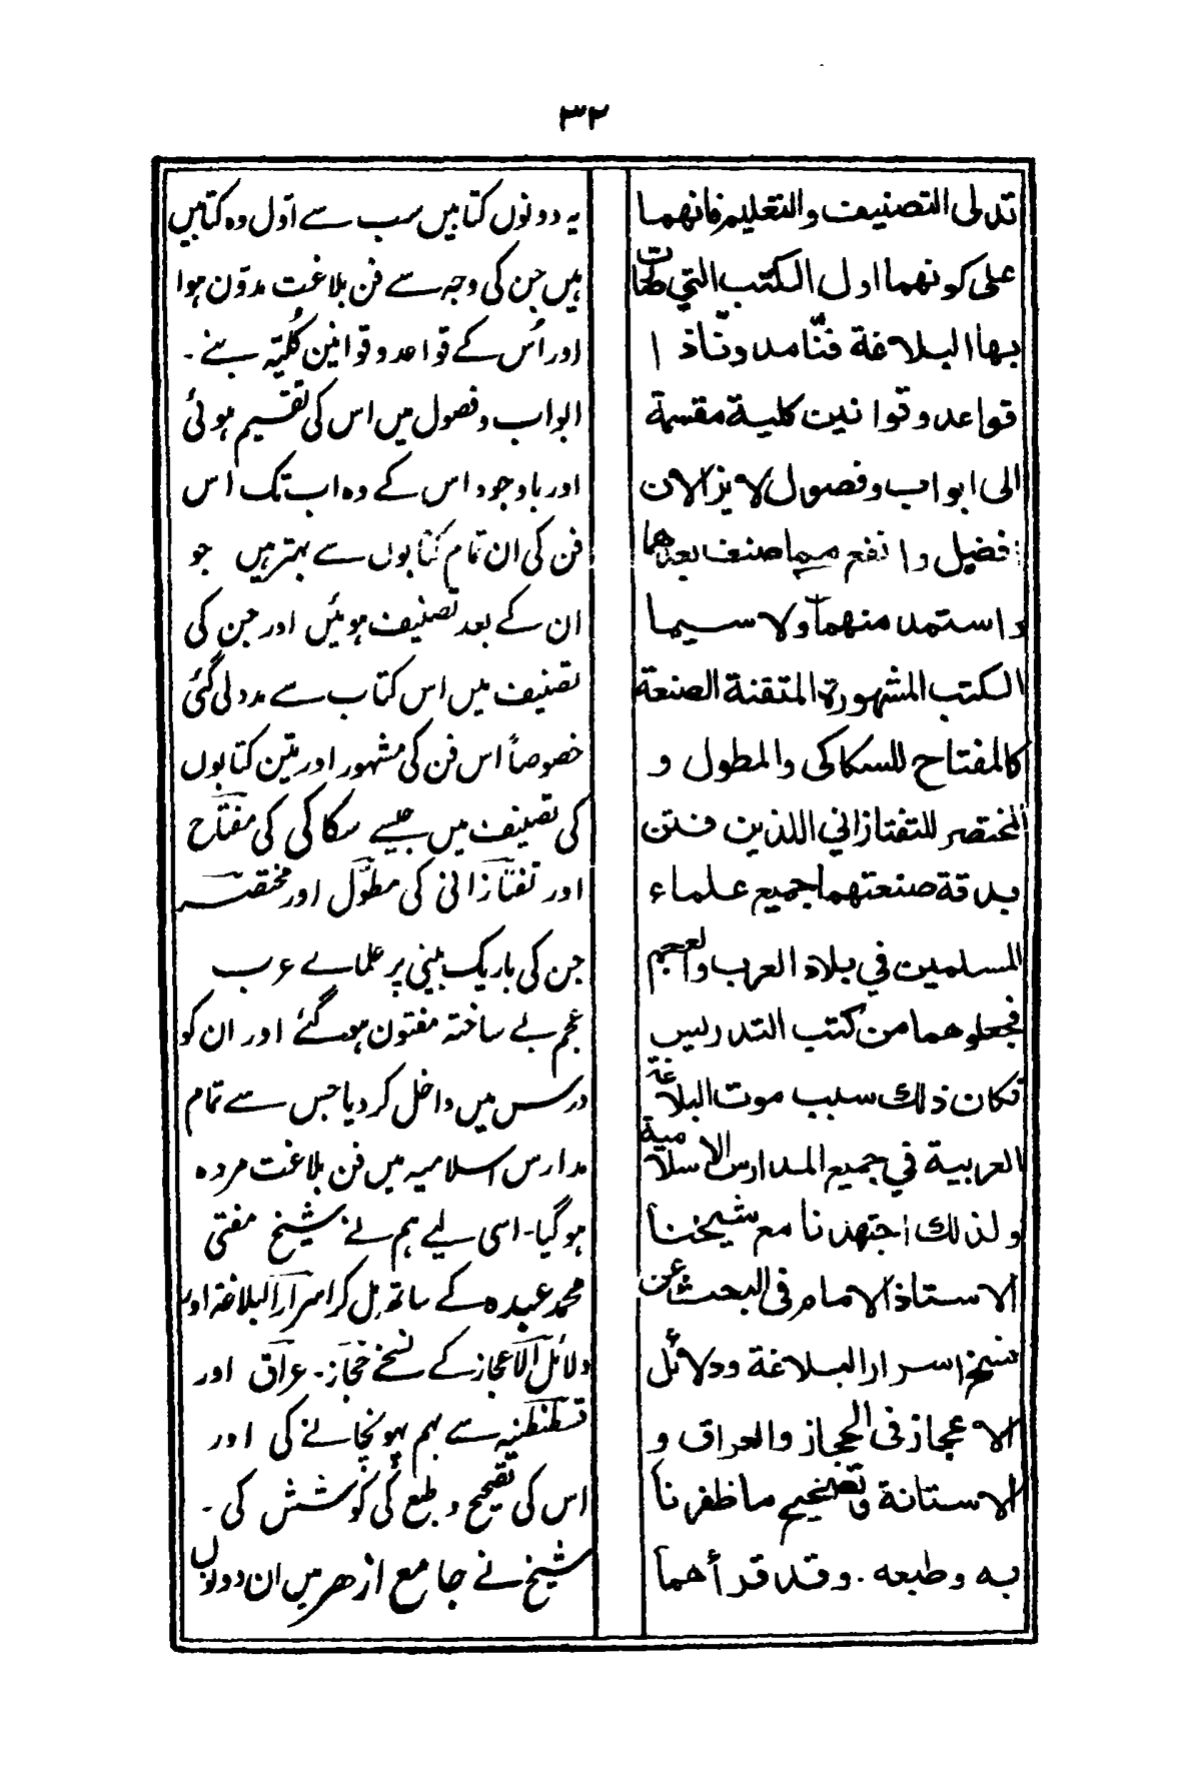 ٣٢
تدلى التصنيف والتعليم فانهما
على كونهما اول الكتب التي
بها البلاغة فنّا مدونّا ذا
قواعد وقوانين كلية مقسمة
الى ابواب وفصول لا يزالان
افضيل وانفع مما صنف بعدهما
واستمد منهما ولا سيما
الكتب المشهورة المتقنة الصنعة
كالمفتاح للسكاكى والمطول و
المختصر للتفتازاني اللذين فتن
بدقة صنعتهما جميع علماء
المسلمين في بلاد العرب والعجم
فجعلوهما من كتب التدريس
فكان ذلك سبب موت البلاغة
العربية في جميع المدارس الاسلامية
ولذلك اجتهدنا مع شيخنا
الاستاذ الامام فى البحث عن
نسخ اسرار البلاغة ودلائل
الاعجاز فى الحجاز والعراق و
الاستانة وتصحيح ما ظفرنا
به وطبعه. وقد قرأهما
یہ دونوں کتابیں سب سے اوّل وہ کتابیں
ہیں جن کی وجہ سے فن بلاغت مدوّن ہوا
اور اُس کے قواعد و قوانین کُلیّہ بنے۔
ابواب وفصول میں اس کی تقسیم ہوئی
اور باوجود اس کے وہ اب تک اس
فن کی ان تمام کتابوں سے بہتر ہیں جو
ان کے بعد تصنیف ہوئیں اور جن کی
تصنیف میں اس کتاب سے مدد لی گئی
خصوصاً اس فن کی مشہور اور متین کتابوں
کی تصنیف میں جیسے سکاکی کی مفتاح
اور تفتازانی کی مطوّل اور مختصر
جن کی باریک بینی پر علمائے عرب
عجم بے ساختہ مفتون ہو گئے اور ان کو
درس میں داخل کر دیا جس سے تمام
مدارس اسلامیہ میں فن بلاغت مردہ
ہو گیا۔ اسی لیے ہم نے شیخ مفتی
محمد عبدہ کے ساتھ مل کر اسرار البلاغۃ اور
دلائل الاعجاز کے نسخے حجاز۔ عراق اور
قسطنطنیہ سے بہم پہونچانے کی اور
اس کی تصحیح و طبع کی کوشش کی۔
شیخ نے جامع ازھر میں ان دونوں